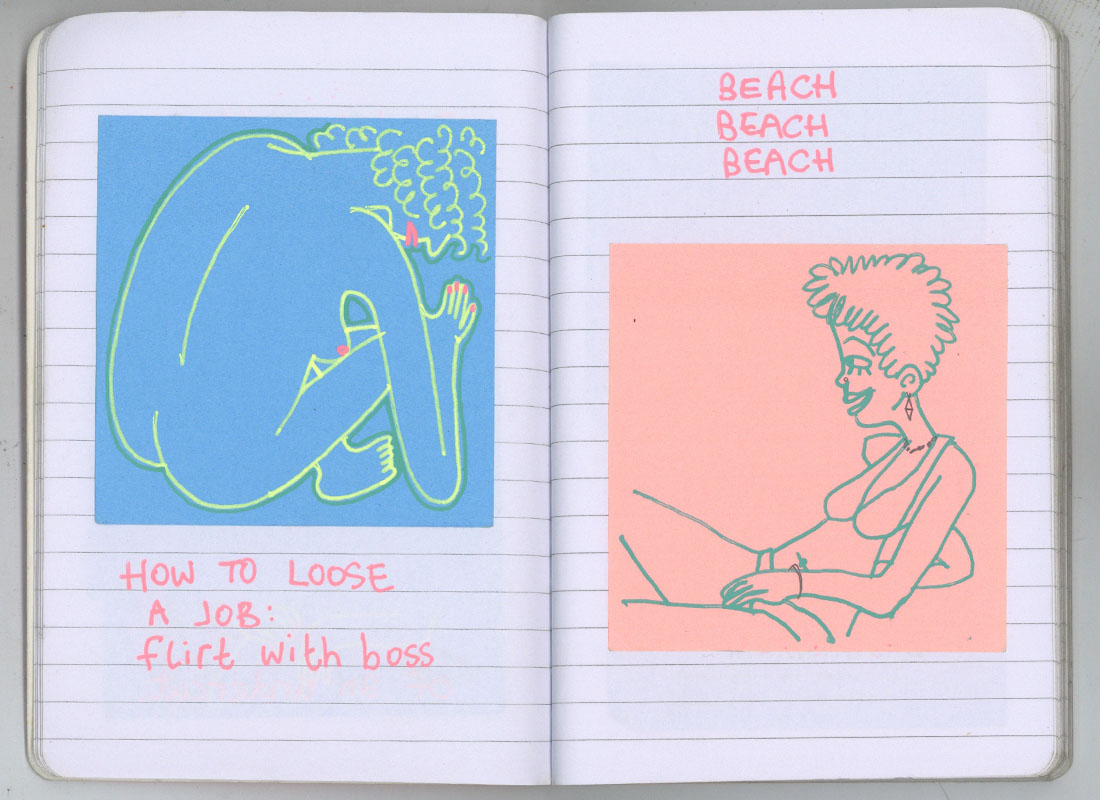 HOW TO LOOSE
A JOB:
flirt with boss
BEACH
BEACH
BEACH